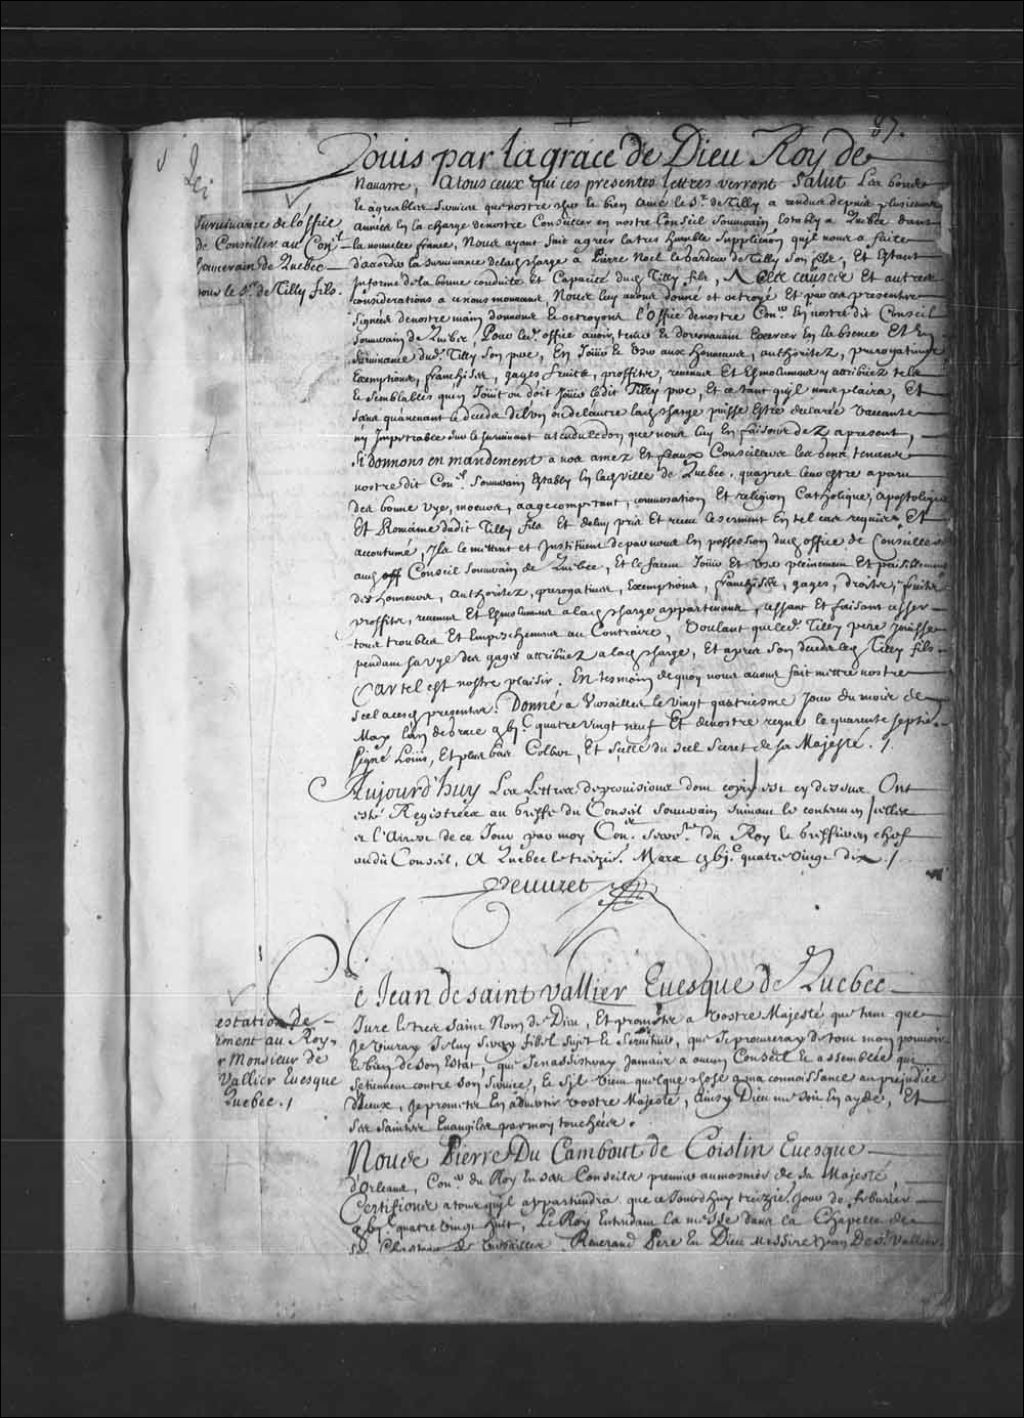 87.
Louis par la grace de Dieu Roy de
Nauarre, A tous ceux qui ces presentes lettres verront Salut Les bons
& agreables seruices que nostre cher & bien Amé le Sr. de Tilly a rendus depuis plusieurs
années En la charge de nostre Conseiller en nostre Conseil Souuerain Estably a Quebec dans
la nouuelle france, Nous ayant fait agreer la tres humble supplication qu'il nous a faite
d'accorder la suruiuance de lad. charge a Pierre Noel le Gardeur de Tilly son fils, Et Estant
Informé de la bonne conduite Et Capacité dud. Tilly fils, A Ces causes Et autres
considerations a ce nous mouuans, Nous luy auons donné et octroyé Et par ces presentes
signées de nostre main donnons & octroyons l'Office de nostre Conser. En nostre dit Conseil
Souuerain de Quebec, Pour led. office auoir, tenir & doresnauant Exercer En l'absence Et En
suruiuance dud. Tilly son pere, En Joüir & Vser aux honneurs, authoritez, prerogatiues
Exemptions, franchises, gages, fruits, proffits, reuenus Et Esmolumens y attribüez tels
& semblables qu'en Joüit ou doit Joüir ledit Tilly pere, Et ce tant qu'il nous plaira, Et
sans qu'auenant le deceds de l'vn ou de l'autre lad. charge puisse Estre declarée vaccante
ny Impetrable sur le suruiuant attendu le don que nous luy En faisons dez a present,
Si donnons en mandement a nos amez Et feaux Conseillers les Gens tenans
nostre dit Conel. Souuerain Estably En lad. ville de Quebec, qu'apres leur estre aparu
des bonne vye, moeurs, aage competant, conuersation Et religion Catholique, Apostolique
Et Romaine dudit Tilly fils Et de luy pris Et receu le serment En tel cas requis Et
accoutumé, Ils le mettent et Instituent de par nous En possession dud. office de Conseiller
aud. Conseil Souuerain de Quebec, Et le facent Joüir Et Vser pleinement Et paisiblement
des honneurs, Authoritez, prerogatiues, Exemptions, franchises, gages, droits, fruits
proffits, reuenus Et Esmolumens a lad. charge appartenans, cessant Et faisant cesser
tous troubles Et Empeschemens au Contraire, Voulant que led. Tilly pere Jouisse
pendant sa vye des gages attribüez a lad. charge, Et apres son deceds led. Tilly fils
Car tel est nostre plaisir. En tesmoin de quoy nous auons fait mettre nostre
scel a cesd. presentes. Donné a Versailles le Vingt quatriesme Jour du mois de
May l'an de grace gbjc. quatre vingt neuf Et de nostre regne le quarente septie.
signé Loüis, Et plus bas Colbert, Et scellé du scel secret de sa Majesté. /.
Suruiuance de l'office
de Conseiller au Conel.
souuerain de Quebec
pour le Sr. de Tilly fils.
Aujourd'huy Les Lettres de prouisions dont copie est cy dessus, Ont
esté Registrées au Greffe du Conseil Souuerain suiuant le contenu en Icelles
et l'Arrest de ce Jour par moy Coner. Secre.re du Roy & Greffier en chef
audit Conseil, A Quebec le treizie. Mars gbjc. quatre vingt dix. /
Peuuret
estation de
rment au Roy
r Monsieur de
Vallier Euesque
Quebec. /
Je Jean de saint vallier Euesque de Quebec
Jure le tres saint Nom de Dieu, Et promets a Vostre Majesté que tant que
Je viuray Je luy seray fidel sujet & seruiteur, que Je procureray de tout mon pouuoir
le bien de son Estat, que Je n'assisteray Jamais a aucun Conseil & assemblée qui
se tiennent contre son seruice, & s'il vient quelque chose a ma connoissance au prejudice
d'Iceux, Je promets En aduertir Vostre Majesté, Ainsy Dieu me soit En ayde, Et
ses saintes Euangiles par moy touchées.
Nous Pierre Du Cambout de Coislin Euesque
d'Orleans, Coner. du Roy En ses Conseils premier aumosnier de sa Majesté,
Certifions a tous qu'il appartiendra que ce Jourd'huy treizie. Jour de feburier
gbjc. quatre vingt huit, Le Roy Entendant la messe dans la Chapelle de
Chasteau de Versailles Reuerend Pere En Dieu Messire Jean De St. Vallier